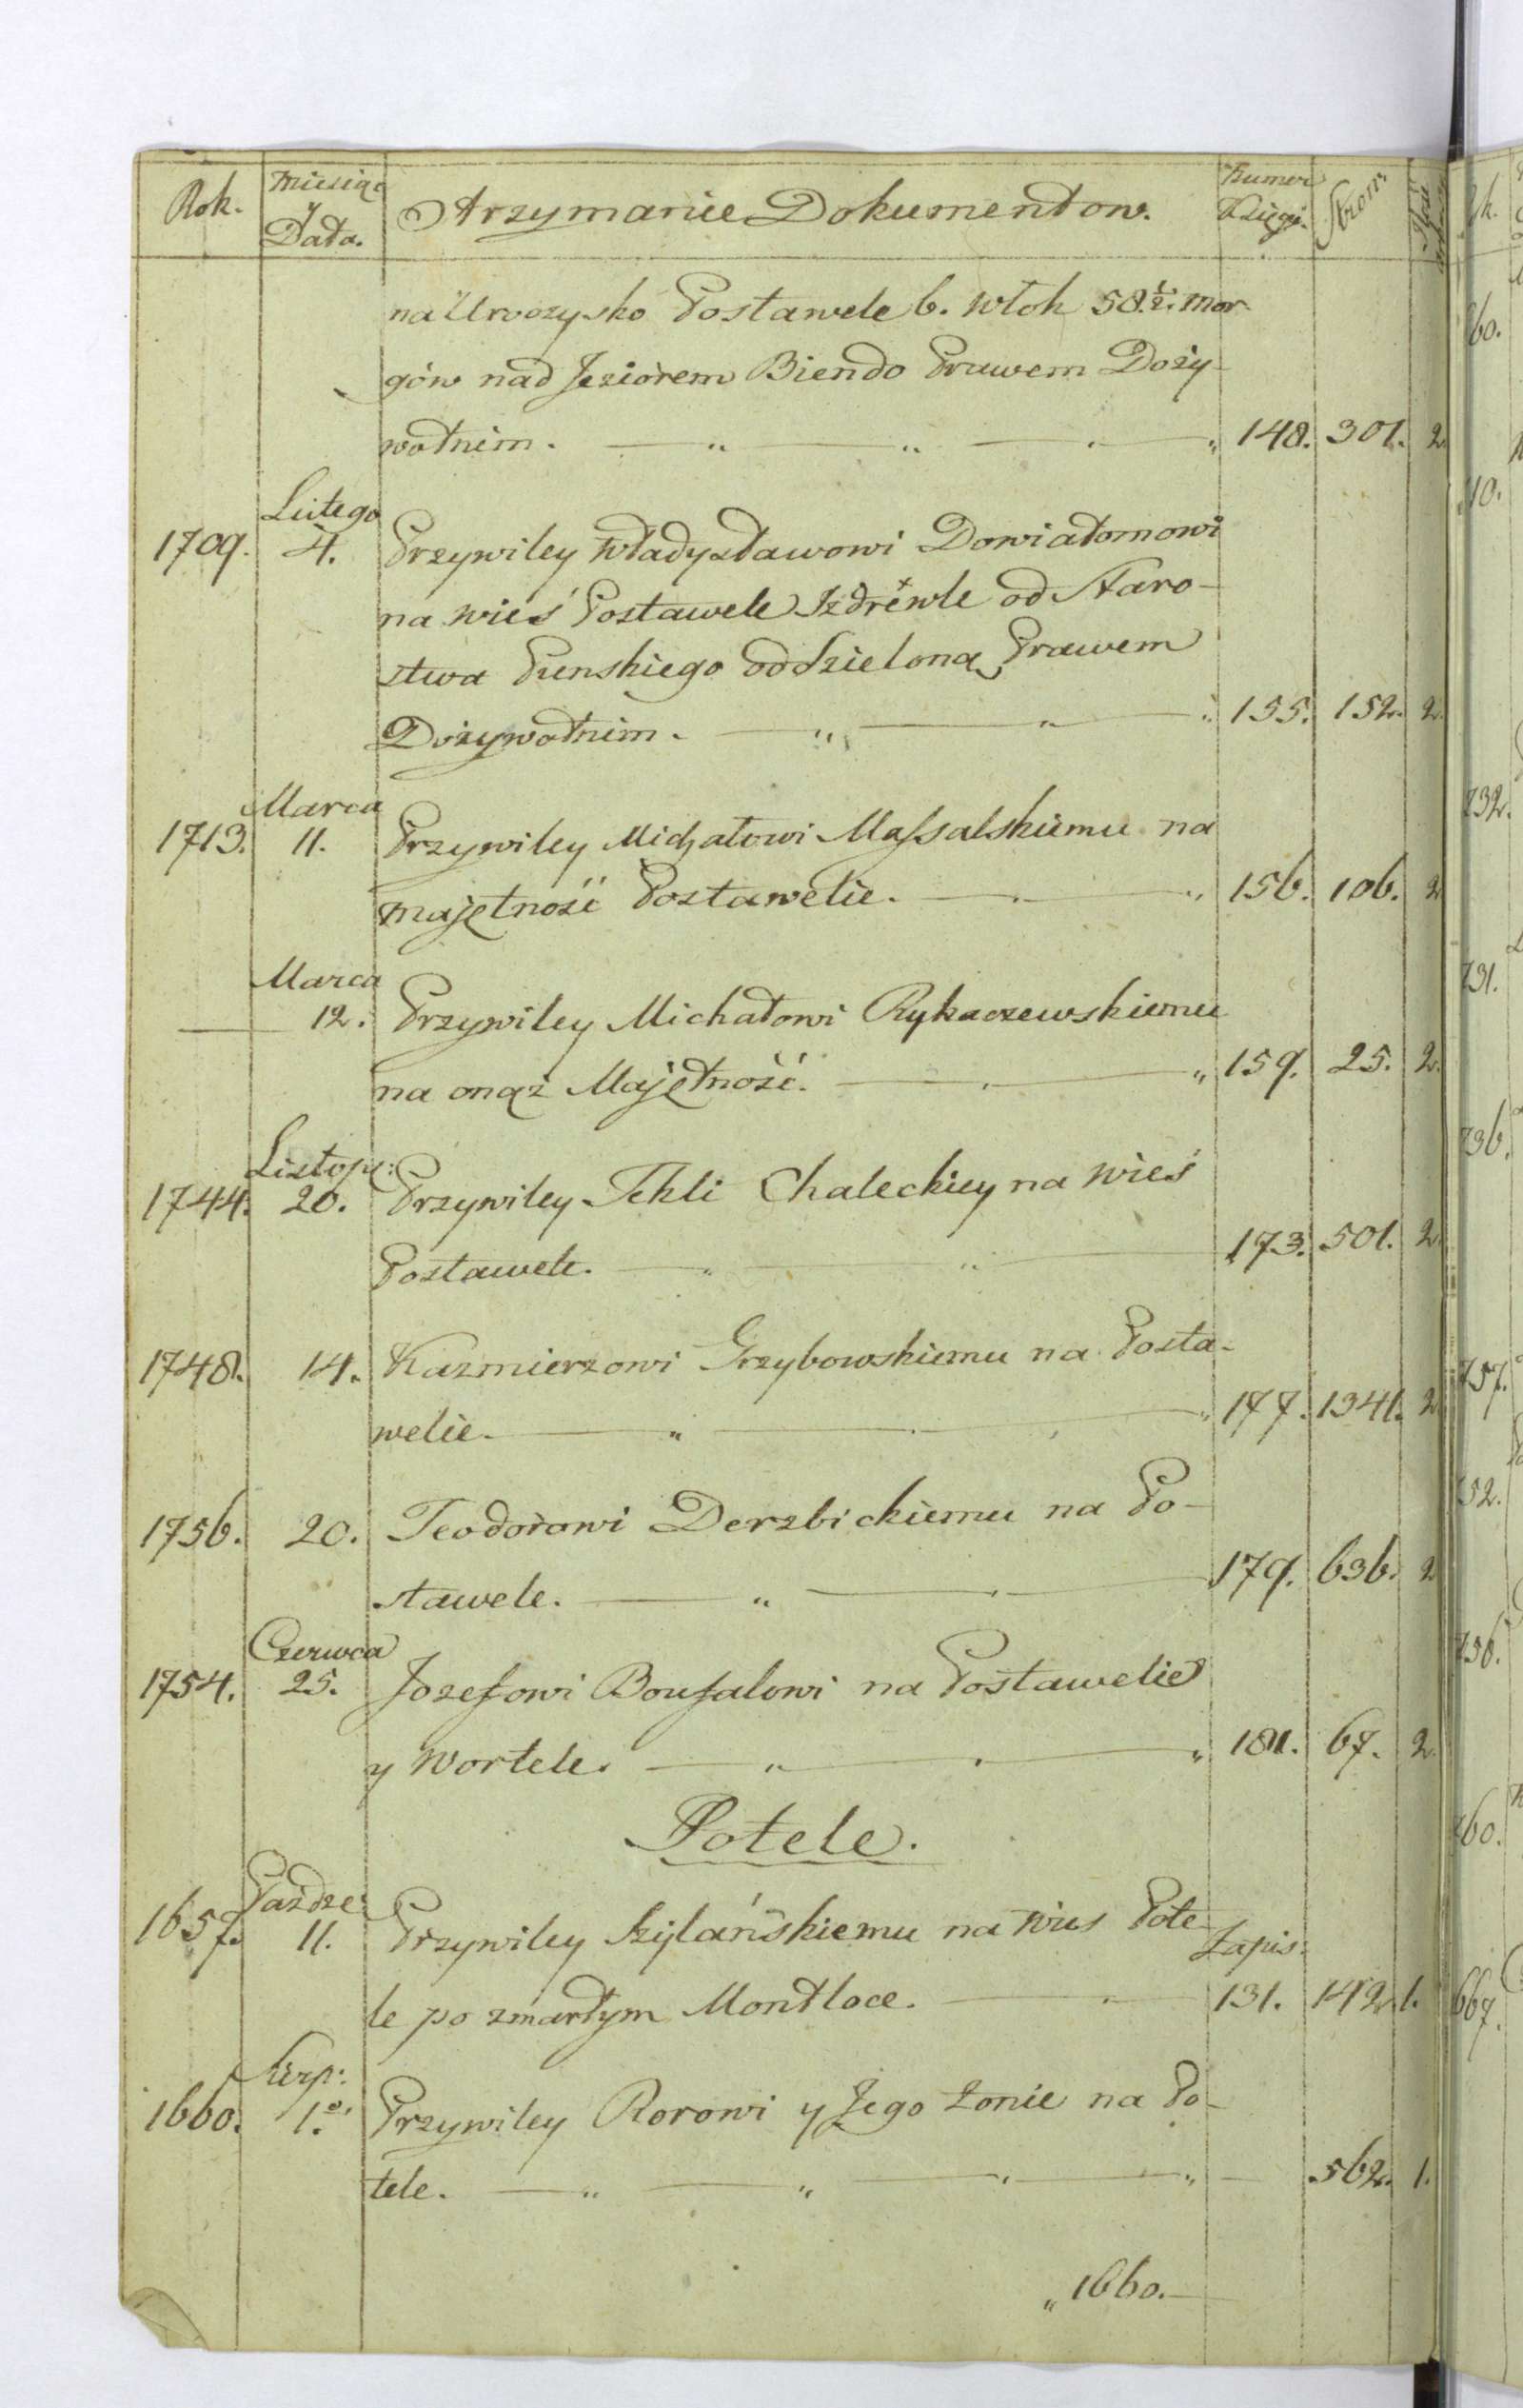 Rok. Miesiąc y Data. Otrzymanie Dokumentow. Numer Księgi. Stron:
na Uroczysko Postawele 6. Włok 58 1/2. mor-
gów nad Jeziorem Biendo Prawem Doży-
wotnim. 148. 301. 2
Lutego
1709. 4. Przywiley Władysławowi Dowiatomowi
na wieś Postawele Izdrewle od Staro-
stwa Punskiego oddzieloną Prawem
Dożywotnim. 155. 152. 2.
Marca
1713. 11. Przywiley Michałowi Massalskiemu na
majętność Postawelie. 156. 106. 2
Marca
— 12. Przywiley Michałowi Rykaczewskiemu
na onąż Majętność. 159. 25. 2.
Listop:
1744. 20. Przywiley Tekli Chaleckiey na wieś
Postawele. 173. 501. 2.
1748. 14. Kazmierzowi Grzybowskiemu na Posta-
welie. 177. 1341. 2
1756. 20. Teodorowi Derzbickiemu na Po-
stawele. 179. 636. 2
Czerwca
1754. 25. Jozefowi Boufałowi na Postawelie
y Wortele. 181. 67. 2.
Potele.
Paźdze:
1657. 11. Przywiley Szylańskiemu na wies Pote-
Zapis:
le po zmarłym Montłoce. 131. 142. 1.
Sierp:
1660. 1o. Przywiley Rorowi y Jego Żonie na Po-
tele. — 562. 1.
„1660.—